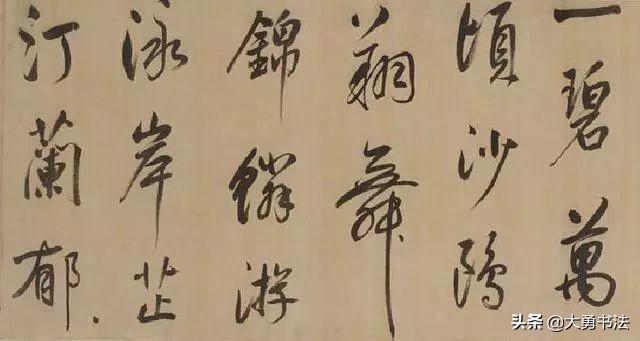 一碧萬
頃沙鷗
翔舞
錦鱗游
泳岸芷
汀蘭郁、
头条 @大勇书法